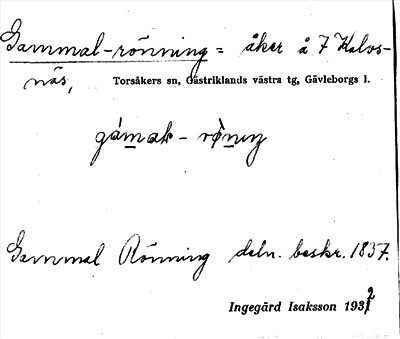 Gammal-rönning = åker å 7 Kalvs-
näs, Torsåkers sn, Gästriklands västra tg, Gävleborgs l.
gámak - rö̀nıŋ
Gammal Rönning deln. beskr. 1837.
Ingegärd Isaksson 1932